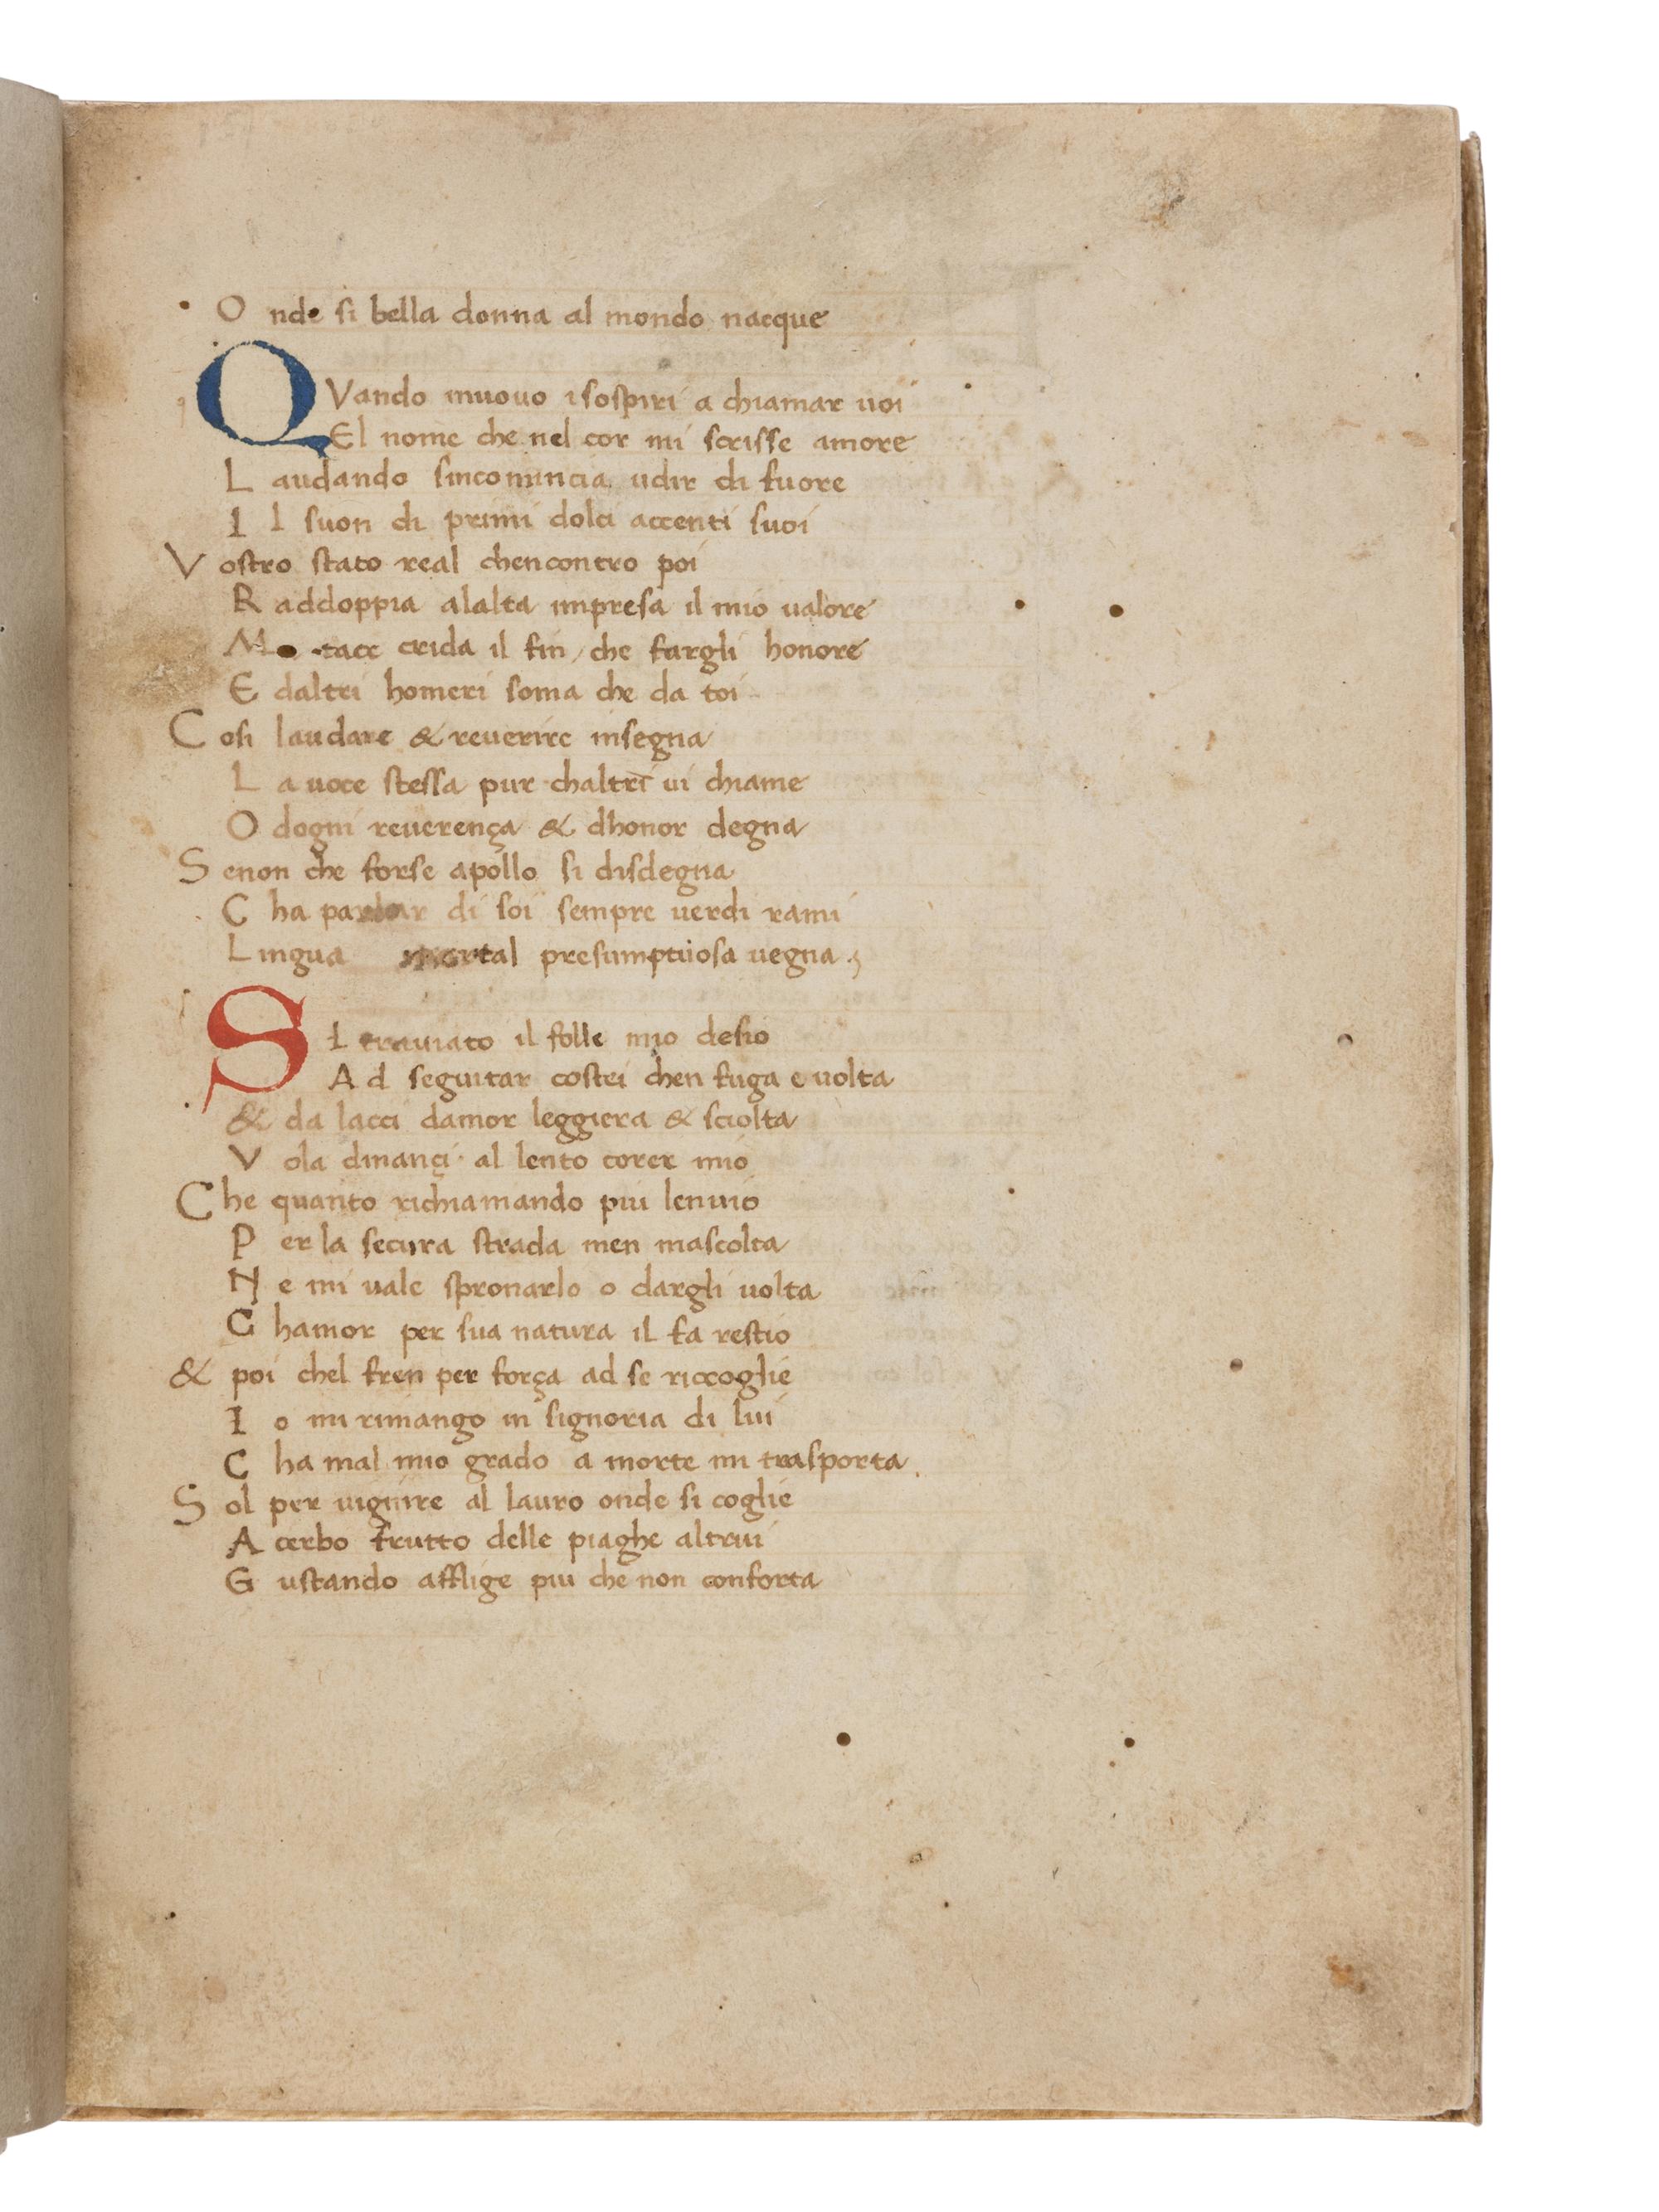 Onde si bella donna al mondo nacque
QVando muouo i sospiri a chiamar uoi
El nome che nel cor mi scrisse amore
Laudando sincomincia udir di fuore
Il suon di primi dolci accenti suoi
Vostro stato real chencontro poi
Raddoppia alalta impresa il mio ualore
Ma tace crida il fin, che fargli honore
E daltri homeri soma che da toi
Cosi laudare & reuerire insegna
La uoce stessa pur chaltri ui chiame
O dogni reuerença & dhonor degna
Senon che forse apollo si disdegna
Cha parlar di soi sempre uerdi rami
Lingua mortal presumptuosa uegna
SI trauiato il folle mio desio
Ad seguitar costei chen fuga e uolta
& da lacci damor leggiera & sciolta
Vola dinançi al lento corer mio
Che quanto richiamando piu lenuio
Per la secura strada men mascolta
Ne mi uale spronarlo o dargli uolta
Chamor per sua natura il fa restio
& poi chel fren per força ad se riccoglie
Io mi rimango in signoria di lui
Cha mal mio grado a morte mi trasporta
Sol per uignire al lauro onde si coglie
Acerbo frutto delle piaghe altrui
Gustando afflige piu che non conforta